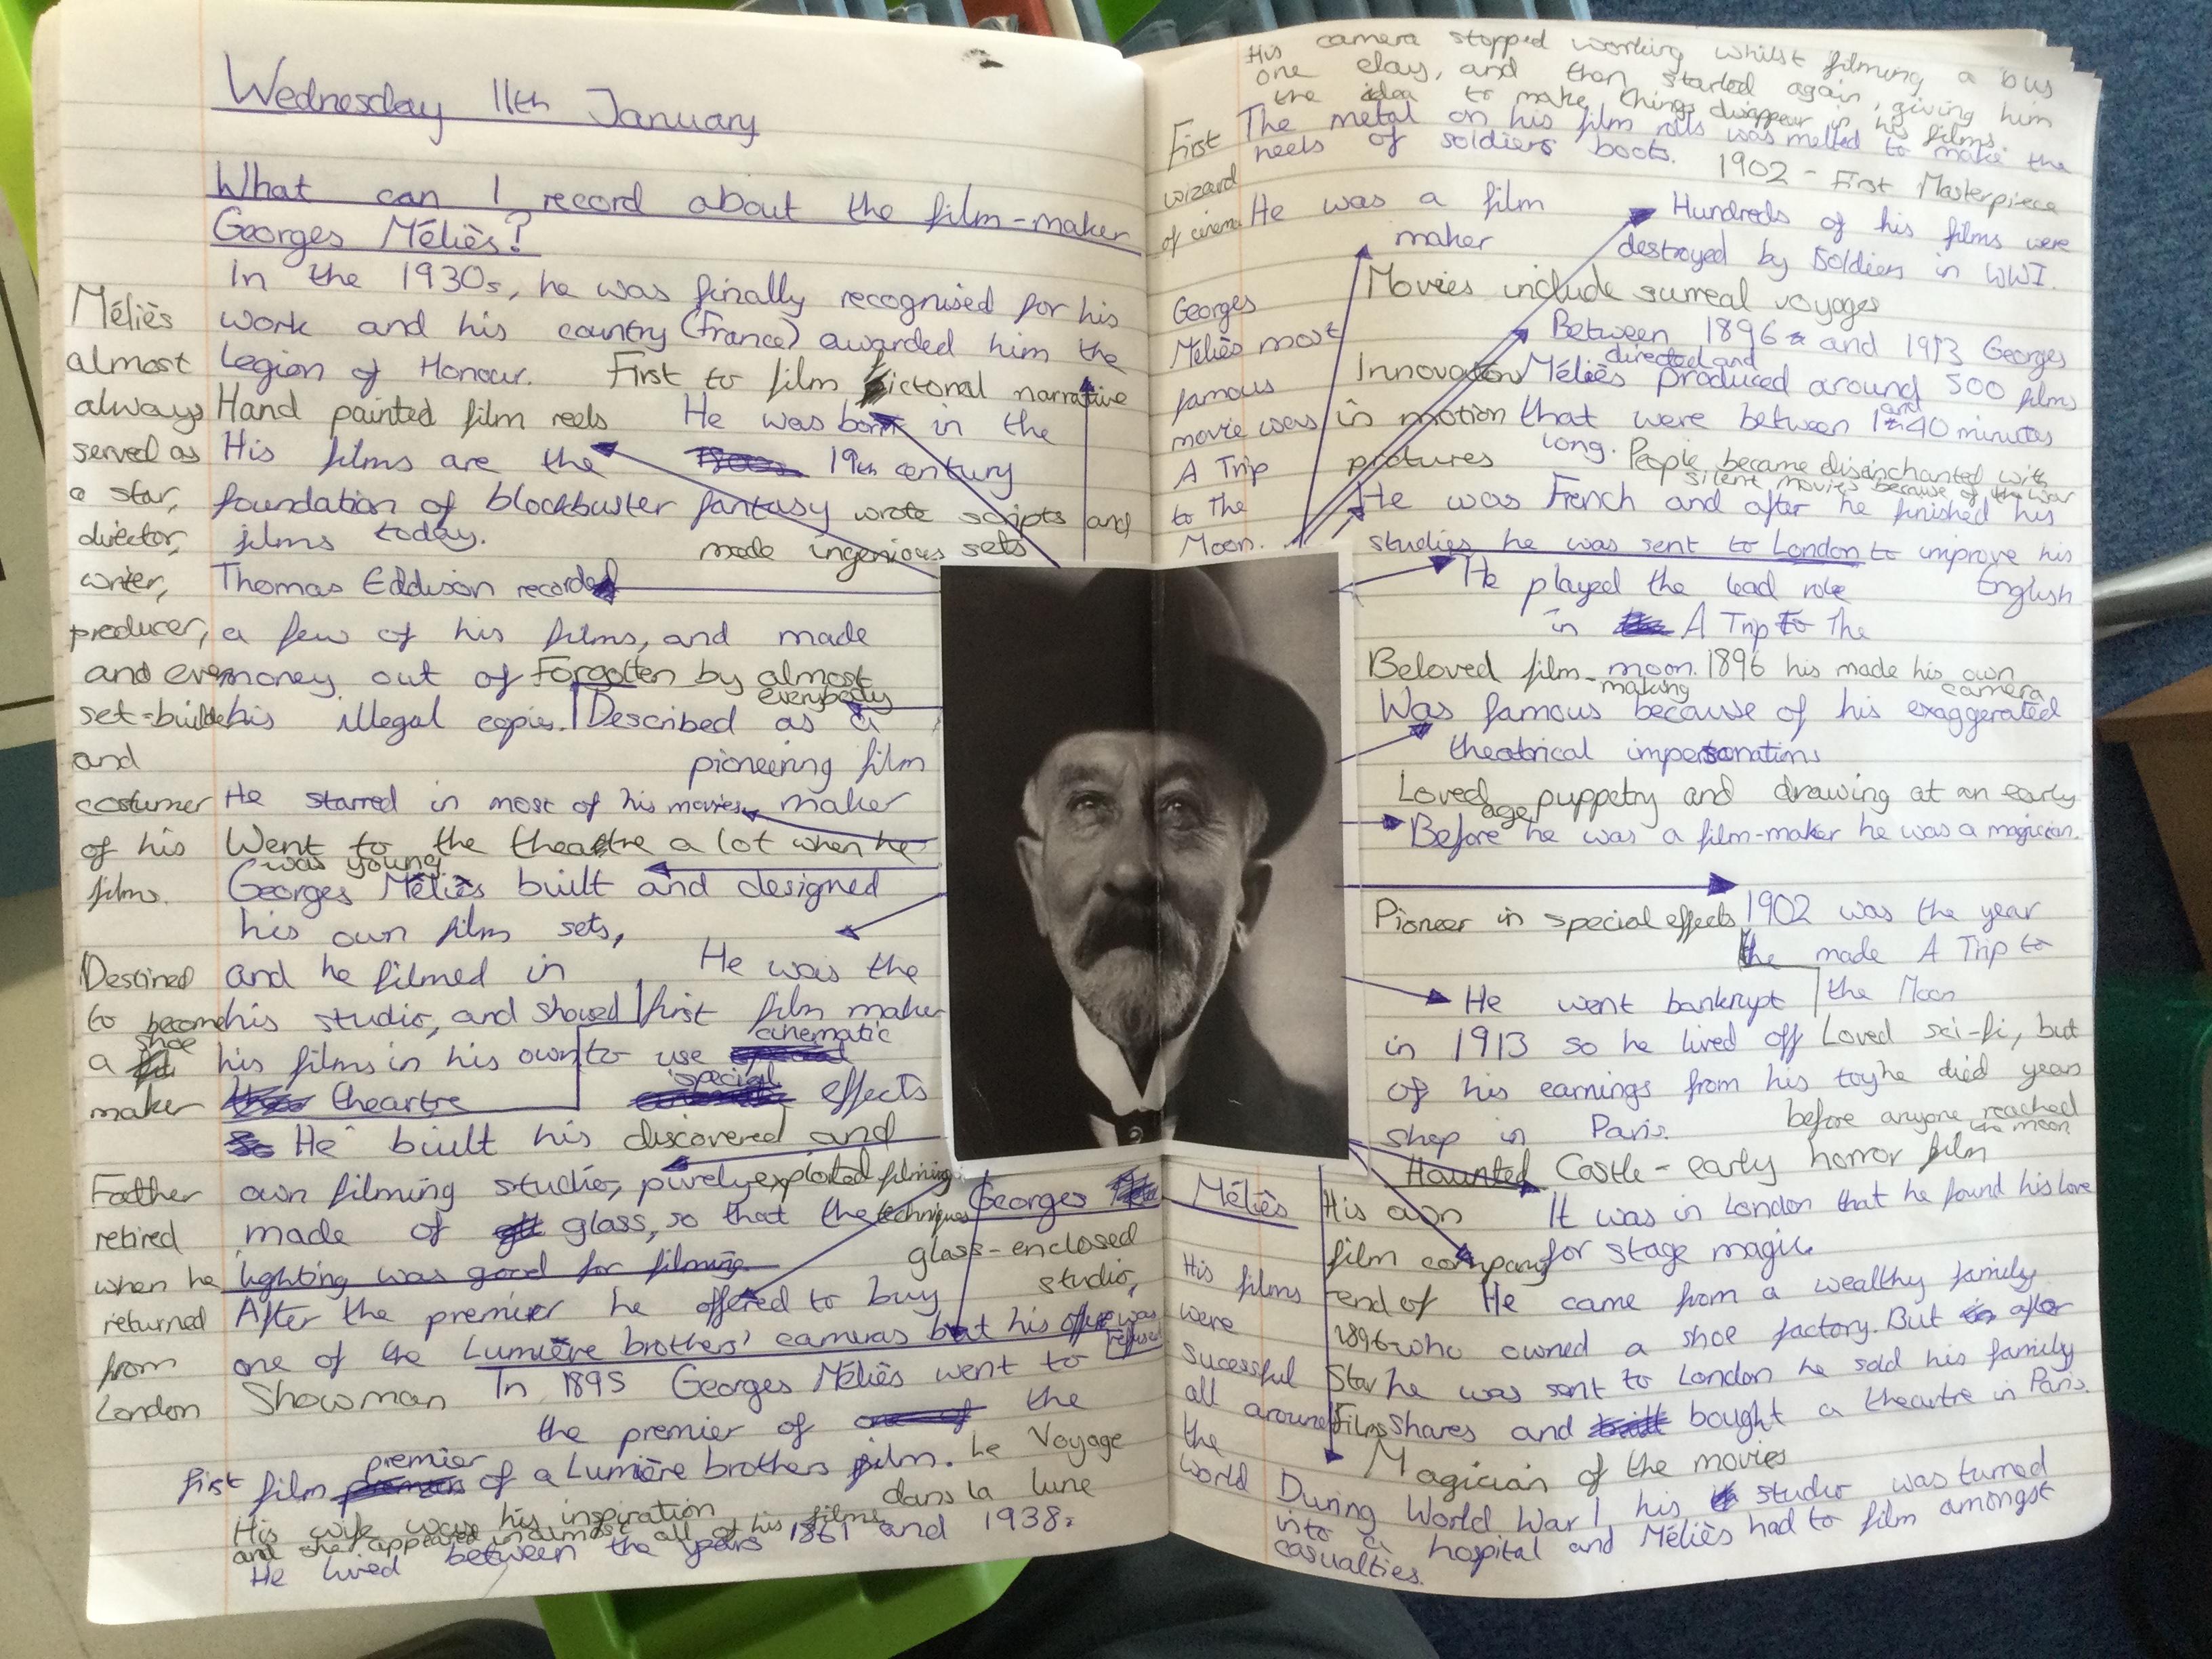 Wednesday 11th January
What can I record about the film-maker
Georges Méliès?
In the 1930s, he was finally recognised for his
work and his country (France) awarded him the
Legion of Honour.
First to film fictonal narrative
Hand painted film reels
He was born in the
19th century
His films are the
foundation of blockbuster fantasy
films today.
wrote scripts and
made ingenious sets
Thomas Eddison recorded
a few of his films, and made
money out of
his illegal copies.
Forgotten by almost
everybody
Described as a
pioneering film
maker
He starred in most of his movies
Went to the theatre a lot when he
was young.
Georges Méliès built and designed
his own film sets,
and he filmed in
his studio, and showed
his films in his own
theartre
He was the
first film maker
to use cinematic
special effects
He built his
own filming studio, purely
made of glass, so that the
lighting was good for filming
discovered and
exploited filming
techniques
glass-enclosed
studio,
After the premier he offered to buy
one of the Lumière brothers' cameras but his offer was
refused
Showman
In 1895 Georges Méliès went to
the premier of the
first film premier of a Lumière brothers film.
Le Voyage
dans la lune
His wife was his inspiration
and she appeared in almost all of his films
He lived between the years 1861 and 1938.
Méliès
almost
always
served as
a star,
director,
writer,
producer,
and even
set-builder
and
costumer
of his
films.
Destined
to become
a shoe
maker
Father
retired
when he
returned
from
London
Georges Méliès
His camera stopped working whilst filming a bus
one day, and then started again, giving him
the idea to make things disappear in his films.
The metal on his film rolls was melted to make the
heels of soldiers boots.
1902 - First Masterpiece
First
wizard
of cinema
He was a film
maker
Hundreds of his films were
destroyed by Soldiers in WWI.
Movies include surreal voyages
Between 1896 and 1913 Georges
Méliès directed and produced around 500 films
that were between 1 and 40 minutes
long.
Innovators
in motion
pictures
People became disinchanted with
silent movies because of the war
He was French and after he finished his
studies he was sent to London to improve his
English
He played the lead role
in A Trip To The
moon.
Beloved film-
making
1896 his made his own
camera
Was famous because of his exaggerated
theatrical impersonations
Loved puppetry and drawing at an early
age
Before he was a film-maker he was a magician.
Pioneer in special effects
1902 was the year
he made A Trip to
the Moon
He went bankrupt
in 1913 so he lived off
of his earnings from his toy
shop in Paris.
Loved sci-fi, but
he died years
before anyone reached
the moon
Haunted Castle - early horror film
It was in London that he found his love
for stage magic.
His own
film company
end of
1896
Star
Films
He came from a wealthy family
who owned a shoe factory. But after
he was sent to London he sold his family
shares and bought a theartre in Paris.
Magician of the movies
During World War 1, his studio was turned
into a hospital and Méliès had to film amongst
casualties.
Georges
Méliès most
famous
movie was
A Trip
to The
Moon.
His films
were
sucessful
all around
the
world